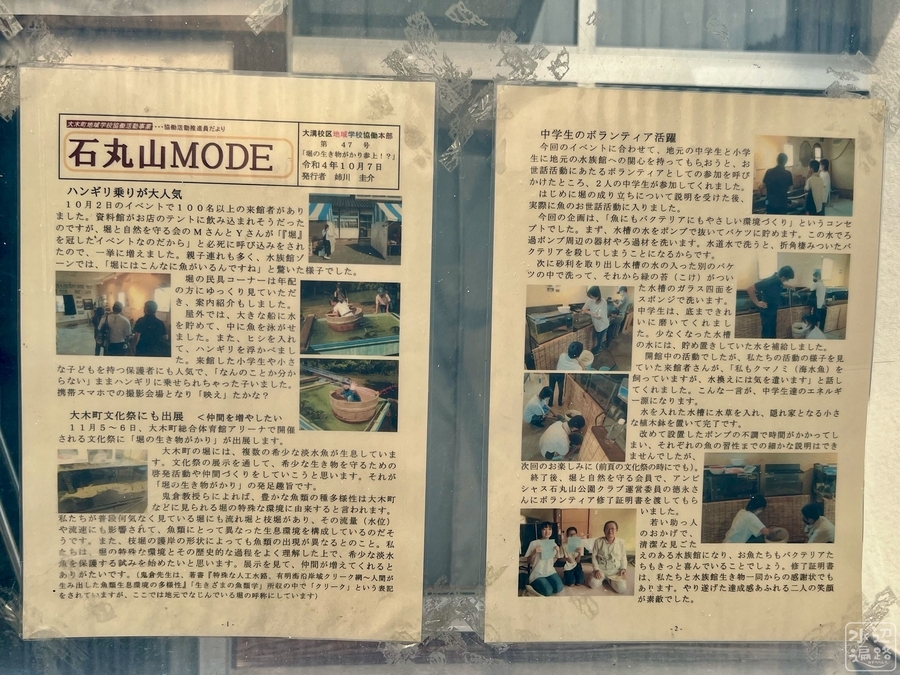 大木町地域学校協働活動事業・・・協働活動推進員だより
石丸山MODE
大溝校区地域学校協働本部
第 47 号
「堀の生き物がかり参上!?」
令和4年10月7日
発行者 姉川 圭介
ハンギリ乗りが大人気
10月2日のイベントで100名以上の来館者があり
ました。資料館がお店のテントに飲み込まれそうだった
のですが、堀と自然を守る会のMさんとYさんが『『堀』
を冠したイベントなのだから」と必死に呼び込みをされ
たので、一挙に増えました。親子連れも多く、水族館ゾ
ーンでは、「堀にはこんなに魚がいるんですね」と驚いた様子でした。
堀の民具コーナーは年配
の方にゆっくり見ていただ
き、案内紹介もしました。
屋外では、大きな船に水
を貯めて、中に魚を泳がせ
ました。また、ヒシを入れ
て、ハンギリを浮かべまし
た。来館した小学生や小さ
な子どもを持つ保護者にも人気で、「なんのことか分か
らない」ままハンギリに乗せられちゃった子いました。
携帯スマホでの撮影会場となり「映え」たかな?
大木町文化祭にも出展 <仲間を増やしたい
11月5~6日、大木町総合体育館アリーナで開催
される文化祭に「堀の生き物がかり」が出展します。
大木町の堀には、複数の希少な淡水魚が生息していま
す。文化祭の展示を通して、希少な生き物を守るための
啓発活動や仲間づくりをしていこうと思います。それが
「堀の生き物がかり」の発足趣旨です。
鬼倉教授らによれば、豊かな魚類の種多様性は大木町
などに見られる堀の特殊な環境に由来すると言われます。
私たちが普段何気なく見ている堀にも流れ堀と枝堀があり、その流量(水位)
や流速にも影響されて、魚類にとって異なった生息環境を構成しているのだそ
うです。また、枝堀の護岸の形状によっても魚類の出現が異なるとのこと。私
たちは、堀の特殊な環境とその歴史的な過程をよく理解した上で、希少な淡水
魚を保護する試みを始めたいと思います。展示を見て、仲間が増えてくれると
ありがたいです。(鬼倉先生は、著書『特殊な人工水路、有明海沿岸域クリーク網~人間が
生み出した魚類生息環境の多様性』「生きざまの魚類学」所収の中で「クリーク」という表記
をされていますが、ここでは地元でなじんでいる堀の呼称にしています)
- 1 -
中学生のボランティア活躍
今回のイベントに合わせて、地元の中学生と小学
生に地元の水族館への関心を持ってもらおうと、お
世話活動にあたるボランティアとしての参加を呼び
かけたところ、2人の中学生が参加してくれました。
はじめに堀の成り立ちについて説明を受けた後、
実際に魚のお世話活動に入りました。
今回の企画は、「魚にもバクテリアにもやさしい環境づくり」というコンセ
プトでした。まず、水槽の水をポンプで抜いてバケツに貯めます。この水でろ
過ポンプ周辺の器材やろ過材を洗います。水道水で洗うと、折角棲みついたバ
クテリアを殺してしまうことになるからです。
次に砂利を取り出し水槽の水の入った別のバケ
ツの中で洗って、それから緑の苔(こけ)がつい
た水槽のガラス四面を
スポンジで洗います。
中学生は、底まできれ
いに磨いてくれまし
た。少なくなった水槽
の水には、貯め置きしていた水を補給しました。
開館中の活動でしたが、私たちの活動の様子を見
ていた来館者さんが、「私もクマノミ(海水魚)を
飼っていますが、水換えには気を遣います」と話し
てくれました。こんな一言が、中学生達のエネルギ
ー源になります。
水を入れた水槽に水草を入れ、隠れ家となる小さ
な植木鉢を置いて完了です。
改めて設置したポンプの不調で時間がかかってし
まい、それぞれの魚の習性までの細かな説明はでき
ませんでしたが、
次回のお楽しみに(前頁の文化祭の時にでも)。
終了後、堀と自然を守る会員で、アンビ
シャス石丸山公園クラブ運営委員の徳永さ
んにボランティア修了証明書を渡してもら
いました。
若い助っ人
のおかげで、
清潔な見ごた
えのある水族館になり、お魚たちもバクテリアた
ちもきっと喜んでいることでしょう。修了証明書
は、私たちと水族館生き物一同からの感謝状でも
あります。やり遂げた達成感あふれる二人の笑顔
が素敵でした。
- 2 -